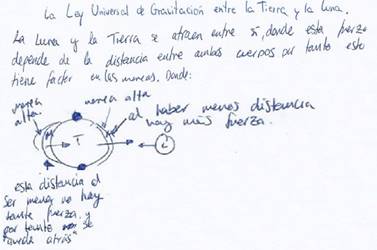 La Ley Universal de Gravitación entre la Tierra y la Luna.
La Luna y la Tierra se atraen entre sí, donde esta fuerza
depende de la distancia entre ambos cuerpos por tanto esto
tiene factor en las mareas. Donde:
marea alta
marea alta
al haber menos distancia
hay más fuerza.
T
L
esta distancia al
ser menor no hay
tanta fuerza y
por tanto se
"queda atrás"